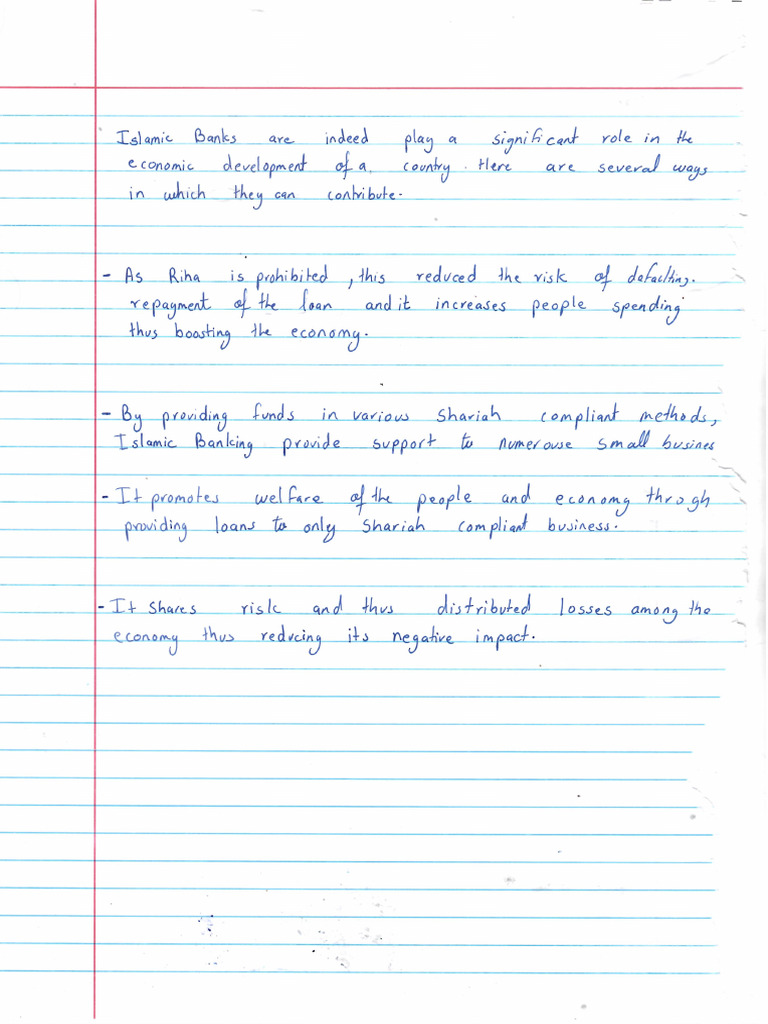 Islamic Banks are indeed play a significant role in the
economic development of a country. Here are several ways
in which they can contribute.
- As Riba is prohibited, this reduced the risk of defaulting.
repayment of the loan and it increases people spending
thus boosting the economy.
- By providing funds in various Shariah compliant methods,
Islamic Banking provide support to numerouse small busines
- It promotes welfare of the people and economy throgh
providing loans to only Shariah compliant business.
- It shares risk and thus distributed losses among the
economy thus reducing its negative impact.